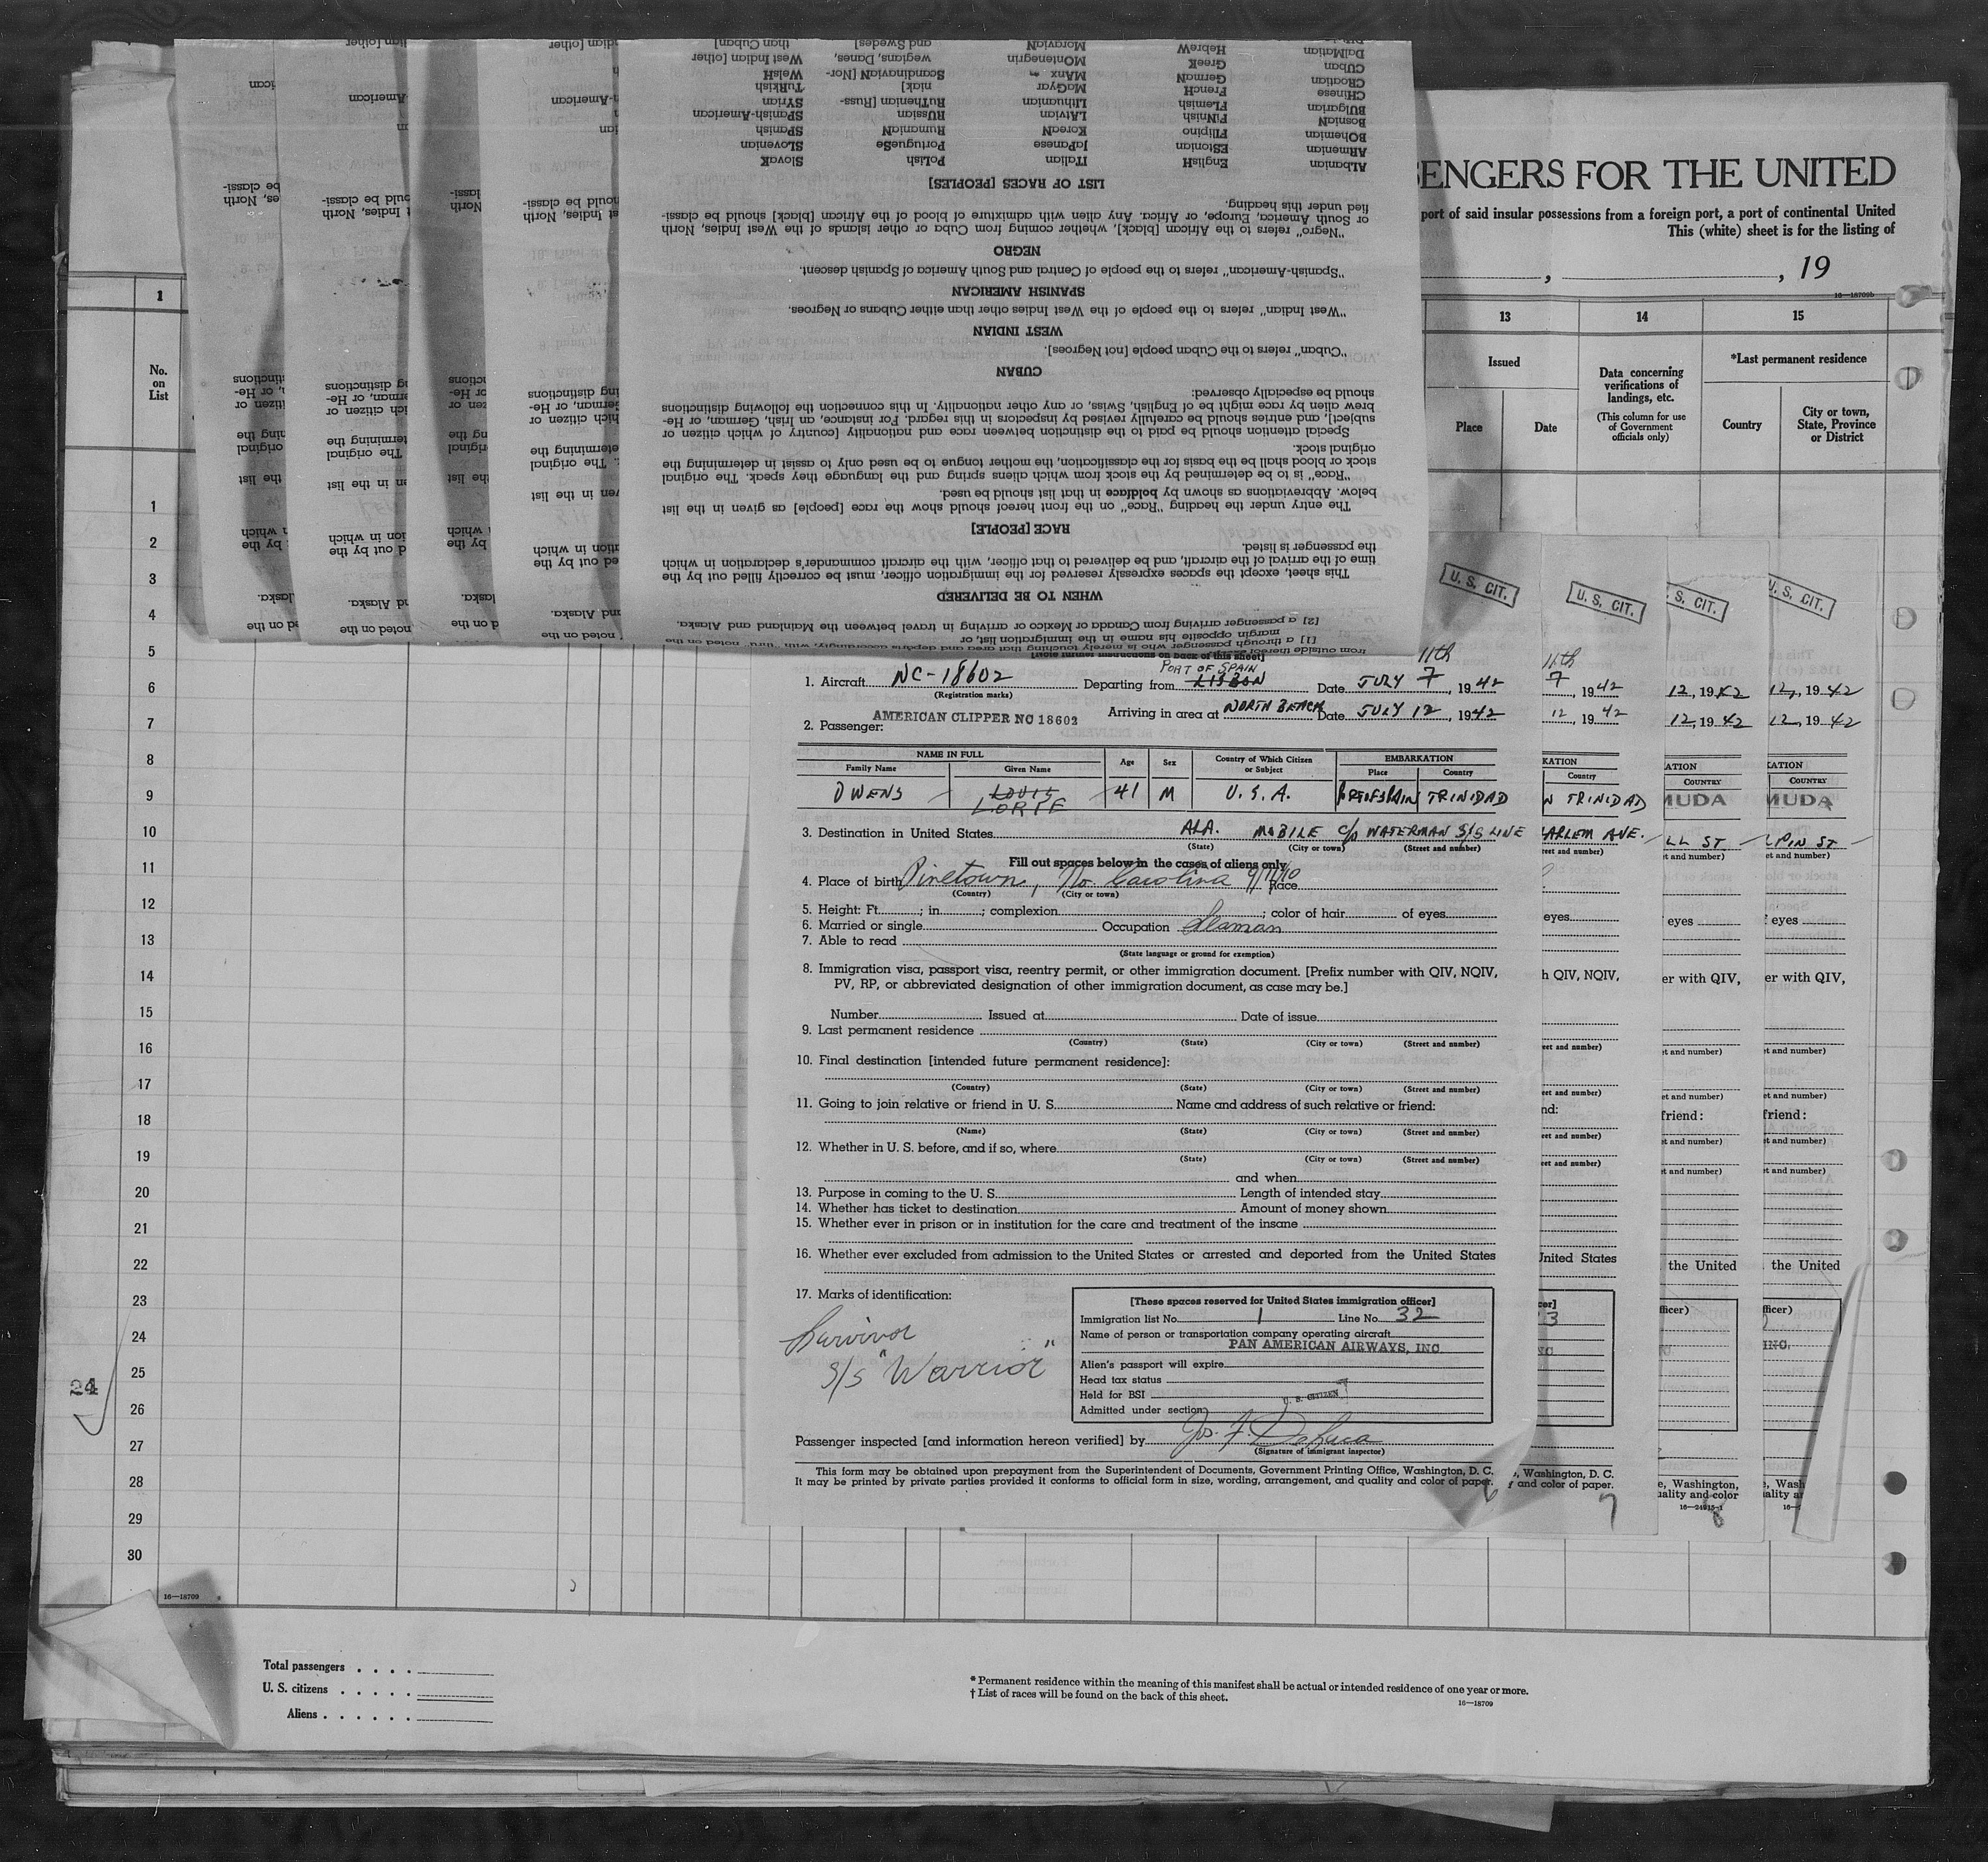 SENGERS FOR THE UNITED
port of said insular possessions from a foreign port, a port of continental United
This (white) sheet is for the listing of
, , 19
16—18709b
1 13 14 15
No. on List
Issued
Place Date
Data concerning verifications of landings, etc.
(This column for use of Government officials only)
*Last permanent residence
Country
City or town, State, Province or District
from outside thereof except
[1] a through passenger who is merely touching that area and departs accordingly, with "thru" noted on the
margin opposite his name in the immigration list, or
[2] a passenger arriving from Canada or Mexico or arriving in travel between the Mainland and Alaska.
WHEN TO BE DELIVERED
This sheet, except the spaces expressly reserved for the immigration officer, must be correctly filled out by the
time of the arrival of the aircraft, and be delivered to that officer, with the aircraft commander's declaration in which
the passenger is listed.
RACE [PEOPLE]
The entry under the heading "Race" on the front hereof should show the race [people] as given in the list
below. Abbreviations as shown by boldface in that list should be used.
"Race" is to be determined by the stock from which aliens spring and the language they speak. The original
stock or blood shall be the basis for the classification, the mother tongue to be used only to assist in determining the
original stock.
Special attention should be paid to the distinction between race and nationality [country of which citizen or
subject], and entries should be carefully revised by inspectors in this regard. For instance, an Irish, German, or He-
brew alien by race might be of English, Swiss, or any other nationality. In this connection the following distinctions
should be especially observed:
CUBAN
"Cuban" refers to the Cuban people [not Negroes].
WEST INDIAN
"West Indian" refers to the people of the West Indies other than either Cubans or Negroes.
SPANISH AMERICAN
"Spanish-American" refers to the people of Central and South America of Spanish descent.
NEGRO
"Negro" refers to the African [black], whether coming from Cuba or other islands of the West Indies, North
or South America, Europe, or Africa. Any alien with admixture of blood of the African [black] should be classi-
fied under this heading.
LIST OF RACES [PEOPLES]
ALbanian EnglisH ITalian PoLish SlovaK
ARmenian EStonian JaPanese PortugueSe SLOVenian
BOhemian FIlipino KoreaN RumaniaN SPanish
BosniaN FiNnish LAtvian RUssian SPanish-American
BUlgarian FLemish LIthuanian RuThenian [Russ- SYrian
CHinese FrencH MaGyar niak] TurKish
CRoatian GermaN MAnx ScandinaviaN [Nor- WelsH
CUban GreeK MOntenegrin wegians, Danes, West Indian [other
DalMatian HebreW MoraviaN and Swedes] than Cuban]
U. S. CIT. U. S. CIT. S. CIT. U. S. CIT.
1. Aircraft NC-18602 Departing from PORT OF SPAIN LISBON Date JULY 7 11th, 1942
(Registration marks)
AMERICAN CLIPPER NC 18602 Arriving in area at NORTH BEACH Date JULY 12, 1942
2. Passenger:
NAME IN FULL Age Sex Country of Which Citizen or Subject EMBARKATION
Family Name Given Name Place Country
OWENS LOUIS LORPE 41 M U.S.A. PORTOFSPAIN TRINIDAD
3. Destination in United States ALA. MOBILE C/O WATERMAN S/S LINE
(State) (City or town) (Street and number)
Fill out spaces below in the cases of aliens only
4. Place of birth Pinetown, No. Carolina 9/11/10 Race
(Country) (City or town)
5. Height: Ft. ; in. ; complexion ; color of hair of eyes
6. Married or single Occupation Seaman
7. Able to read
(State language or ground for exemption)
8. Immigration visa, passport visa, reentry permit, or other immigration document. [Prefix number with QIV, NQIV,
PV, RP, or abbreviated designation of other immigration document, as case may be.]
Number Issued at Date of issue
9. Last permanent residence
(Country) (State) (City or town) (Street and number)
10. Final destination [intended future permanent residence]:
(Country) (State) (City or town) (Street and number)
11. Going to join relative or friend in U. S. Name and address of such relative or friend:
(Name) (State) (City or town) (Street and number)
12. Whether in U. S. before, and if so, where
(State) (City or town) (Street and number)
and when
13. Purpose in coming to the U. S. Length of intended stay
14. Whether has ticket to destination Amount of money shown
15. Whether ever in prison or in institution for the care and treatment of the insane
16. Whether ever excluded from admission to the United States or arrested and deported from the United States
17. Marks of identification:
Survivor
S/S "Warrior"
[These spaces reserved for United States immigration officer]
Immigration list No. 1 Line No. 32
Name of person or transportation company operating aircraft
PAN AMERICAN AIRWAYS, INC
Alien's passport will expire
Head tax status
Held for BSI
U. S. CITIZEN
Admitted under section
Passenger inspected [and information hereon verified] by
(Signature of immigrant inspector)
This form may be obtained upon prepayment from the Superintendent of Documents, Government Printing Office, Washington, D. C.
It may be printed by private parties provided it conforms to official form in size, wording, arrangement, and quality and color of paper.
1
2
3
4
5
6
7
8
9
10
11
12
13
14
15
16
17
18
19
20
21
22
23
24
25
26
27
28
29
30
24
16—18709
Total passengers . . . .
U. S. citizens . . . . .
Aliens . . . . . .
* Permanent residence within the meaning of this manifest shall be actual or intended residence of one year or more.
† List of races will be found on the back of this sheet.
16—18709